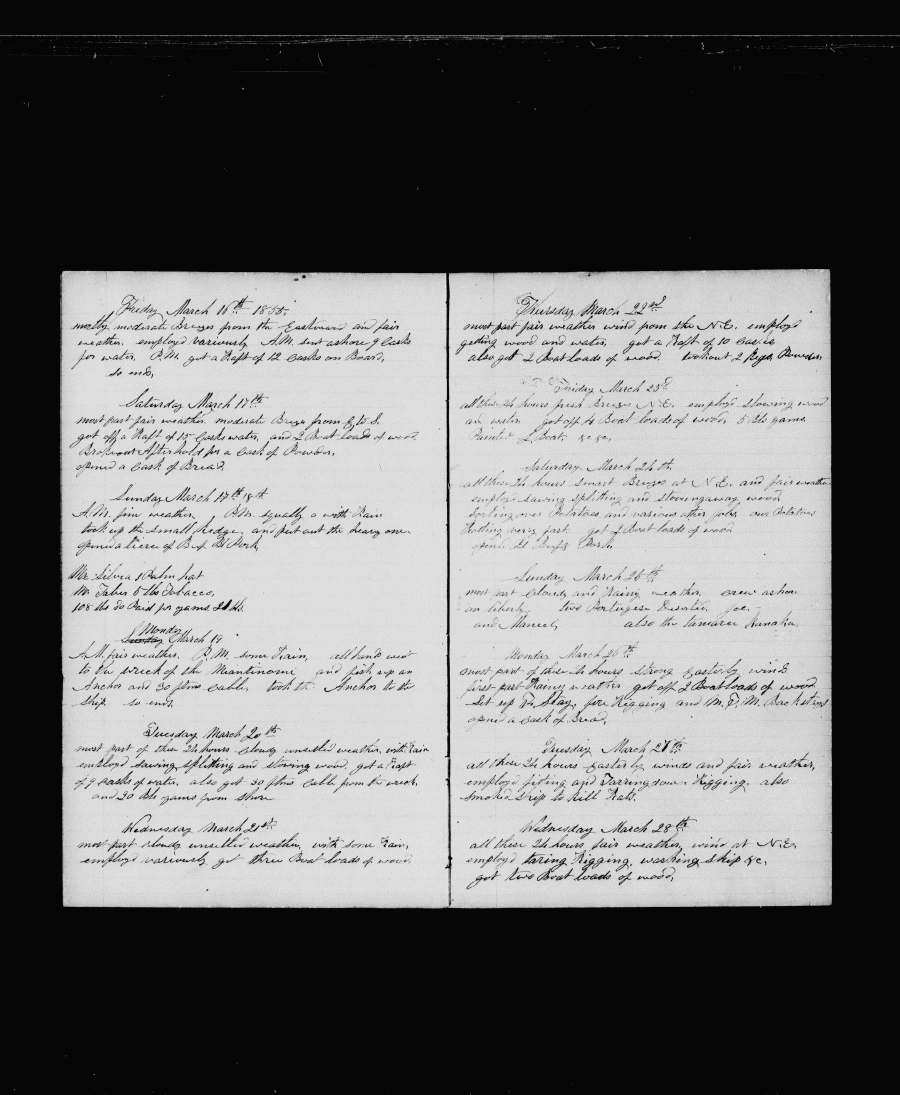 Friday March 16th 1855.
mostly moderate Brezes from the Eastward and fair
weather. employd variously A.M. sent ashore 9 Casks
for water. P.M. got a Raft of 12 Casks on Board,
so ends,
Saturday March 17th
most part fair weather moderate Breze from E to S.
got off a Raft of 15 Casks water, and 2 Boat loads of wood.
Brokeout Afterhold for a Cask of Powder,
opened a Cask of Bread.
Sunday March 17th 18th
A.M. fine weather, P.M. squally with Rain
took up the small Kedge, and put out the heavy one
opened a tierce of Beef, Bl Pork,
Mr Silvia 1 Palm hat
Mr Taber 6 lbs Tobacco,
108 lbs do Paid for yams
Monday
Sunday March 19
A.M. fair weather. P.M. some Rain, all hands went
to the wreck of the and fish up an
Anchor and 30 ftms Cable, took the Anchor to the
Ship. so ends.
Tuesday March 20th
most part of these 24 hours Cloudy unsetled weather, with Rain
employd sawing splitting and stowing wood. got a Raft
of 9 Casks of water. also got 30 ftms Cable from the wreck,
and 20 Bls yams from shore
Wednesday March 21st
most part cloudy unsetled weather, with some Rain,
employd variously, got three Boat loads of wood.
Thursday March 22nd
most part fair weather wind from the N.E. employd
getting wood and water, got a Raft of 10 Casks
also got 2 Boat loads of wood. Powder.
Friday March 23d
all these 24 hours fresh Brezes N.E. employd stowing wood
an water. got off 4 Boat loads of wood, 5 Bls yams
Painted 2 Boats &c &c,
Saturday March 24th
all these 24 hours smart Brezes at N.E. and fair weather
employd sawing splitting and stowingaway wood
over Potatoes and various other jobs, our Potatoes
Rotting very fast. got 2 Boat loads of wood
opened Bl Beef & Pork
Sunday March 25th
most part Cloudy and Rainy weather, crew ashore
on liberty. two Portugese Deserted Joe
and Manuel, also the Kanaka,
Monday March 26th
most part of these 24 hours strong Easterly wind
first part Rainy weather got off 2 Boatloads of wood
Set up Stay, fore Rigging and M. T. M. Backstays
opened a Cask of Bread,
Tuesday March 27th
all these 24 hours Easterly winds and fair weather,
employd and Tarring down Rigging also
Smoked Ship to Kill Rats.
Wednesday March 28th
all these 24 hours fair weather, wind at N.E.
employd taring Rigging, washing ship &c,
got two Boat loads of wood,